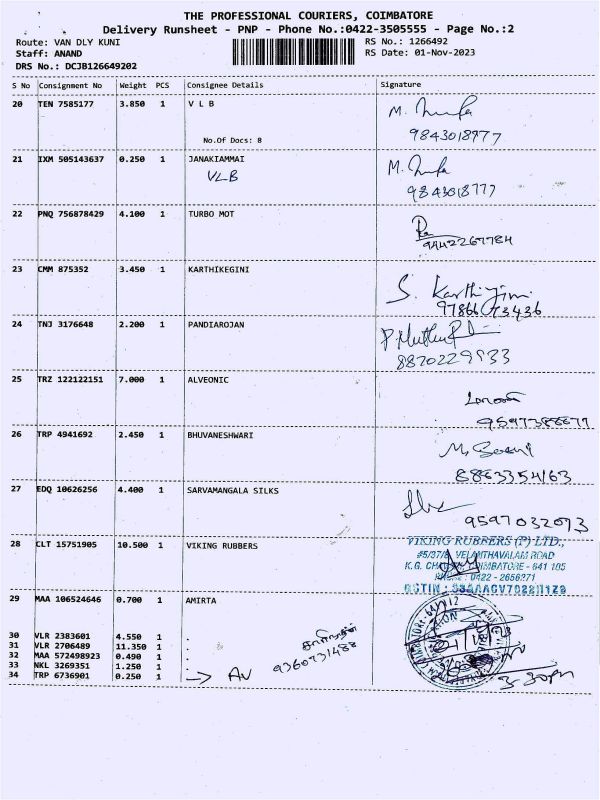 THE PROFESSIONAL COURIERS, COIMBATORE
Delivery Runsheet - PNP - Phone No.:0422-3505555 - Page No.:2
Route: VAN DLY KUNI RS No.: 1266492
Staff: ANAND RS Date: 01-Nov-2023
DRS No.: DCJB126649202
S No Consignment No Weight PCS Consignee Details Signature
20 TEN 7585177 3.850 1 V L B
9843018777
No.Of Docs: 8
21 IXM 505143637 0.250 1 JANAKIAMMAI
VLB
9843018777
22 PNQ 756878429 4.100 1 TURBO MOT
9442267784
23 CMM 875352 3.450 1 KARTHIKEGINI
S. Karthiyini
9786673436
24 TNJ 3176648 2.200 1 PANDIAROJAN
8870229533
25 TRZ 122122151 7.000 1 ALVEONIC
26 TRP 4941692 2.450 1 BHUVANESHWARI
8883354163
27 EDQ 10626256 4.400 1 SARVAMANGALA SILKS
9597032073
28 CLT 15751905 10.500 1 VIKING RUBBERS
VIKING RUBBERS (P) LTD.,
VELANTHAVALAM ROAD
COIMBATORE - 641 105
PHONE : 0422 - 2656271
29 MAA 106524646 0.700 1 AMIRTA
30 VLR 2383601 4.550 1 .
31 VLR 2706489 11.350 1 .
32 MAA 572498923 0.490 1 .
33 NKL 3269351 1.250 1 .
34 TRP 6736901 0.250 1 → AV
9360731488